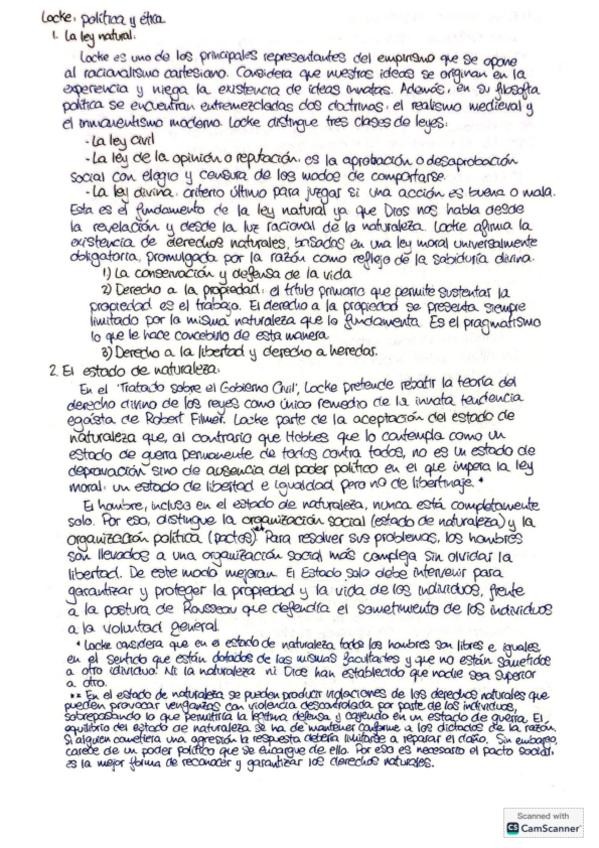 Locke: política y ética
1. La ley natural:
Locke es uno de los principales representantes del empirismo que se opone
al racionalismo cartesiano. Considera que nuestras ideas se originan en la
experiencia y niega la existencia de ideas innatas. Además, en su filosofía
política se encuentran entremezcladas dos doctrinas: el realismo medieval y
el inmanentismo moderno. Locke distingue tres clases de leyes:
- La ley civil
- La ley de la opinión o reputación: es la aprobación o desaprobación
social con elogio y censura de los modos de comportarse.
- La ley divina: criterio último para juzgar si una acción es buena o mala.
Esta es el fundamento de la ley natural ya que Dios nos habla desde
la revelación y desde la luz racional de la naturaleza. Locke afirma la
existencia de derechos naturales, basados en una ley moral universalmente
obligatoria, promulgada por la razón como reflejo de la sabiduría divina.
1) La conservación y defensa de la vida
2) Derecho a la propiedad: el título primario que permite sustentar la
propiedad es el trabajo. El derecho a la propiedad se presenta siempre
limitado por la misma naturaleza que lo fundamenta. Es el pragmatismo
lo que le hace concebirlo de esta manera
3) Derecho a la libertad y derecho a heredar.
2. El estado de naturaleza:
En el 'Tratado sobre el Gobierno Civil', Locke pretende rebatir la teoría del
derecho divino de los reyes como único remedio de la innata tendencia
egoísta de Robert Filmer. Locke parte de la aceptación del estado de
naturaleza que, al contrario que Hobbes que lo contempla como un
estado de guerra permanente de todos contra todos, no es un estado de
depravación sino de ausencia del poder político en el que impera la ley
moral: un estado de libertad e igualdad pero no de libertinaje. *
El hombre, incluso en el estado de naturaleza, nunca está completamente
solo. Por eso, distingue la organización social (estado de naturaleza) y la
organización política (pactos).** Para resolver sus problemas, los hombres
son llevados a una organización social más compleja sin olvidar la
libertad. De este modo mejoran. El Estado solo debe intervenir para
garantizar y proteger la propiedad y la vida de los individuos, frente
a la postura de Rousseau que defendía el sometimiento de los individuos
a la voluntad general.
* Locke considera que en el estado de naturaleza todos los hombres son libres e iguales
en el sentido que están dotados de las mismas facultades y que no están sometidos
a otro individuo. Ni la naturaleza ni Dios han establecido que nadie sea superior
a otro.
** En el estado de naturaleza se pueden producir violaciones de los derechos naturales que
pueden provocar venganzas con violencia descontrolada por parte de los individuos,
sobrepasando lo que permitiría la legítima defensa y cayendo en un estado de guerra. El
equilibrio del estado de naturaleza se ha de mantener conforme a los dictados de la razón.
Si alguien cometiera una agresión la respuesta debería limitarse a reparar el daño. Sin embargo,
carece de un poder político que se encargue de ello. Por eso es necesario el pacto social:
es la mejor forma de reconocer y garantizar los derechos naturales.
Scanned with
CS CamScanner